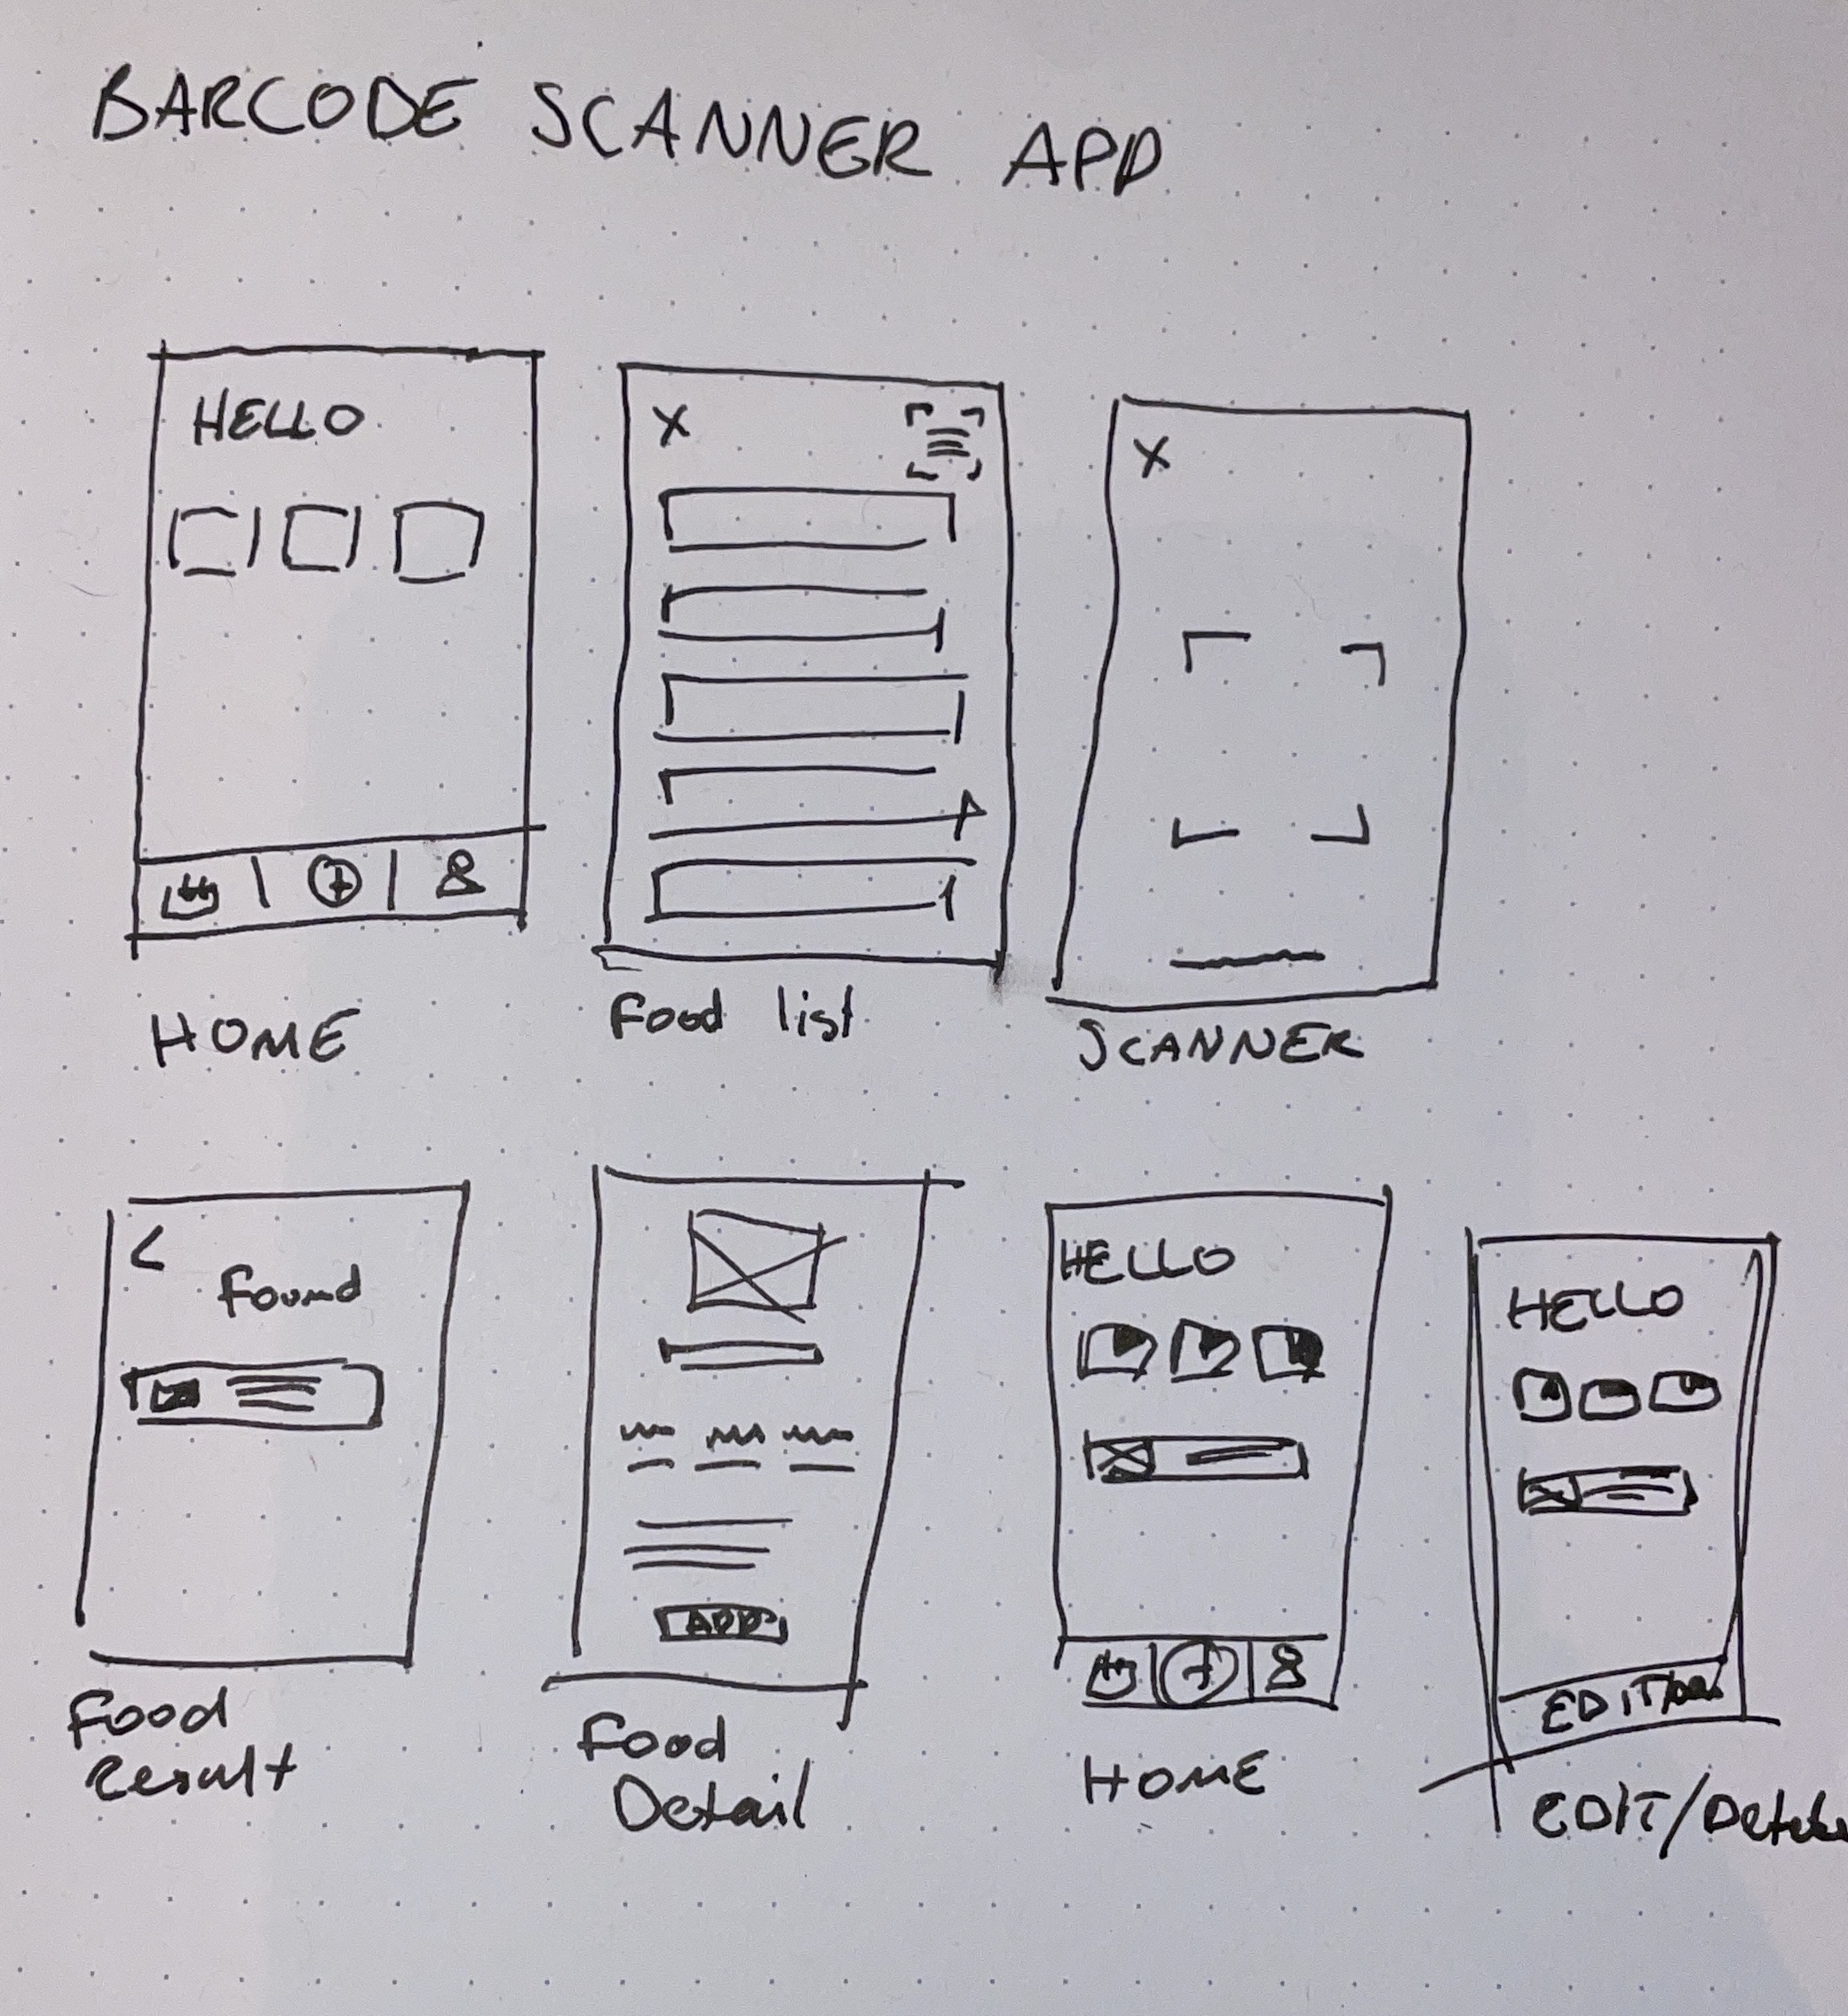 BARCODE SCANNER APP
HELLO
X
X
HOME
Food list
SCANNER
<
Found
ADD
Food
Result
Food
Detail
HELLO
HOME
HELLO
EDIT/
EDIT/